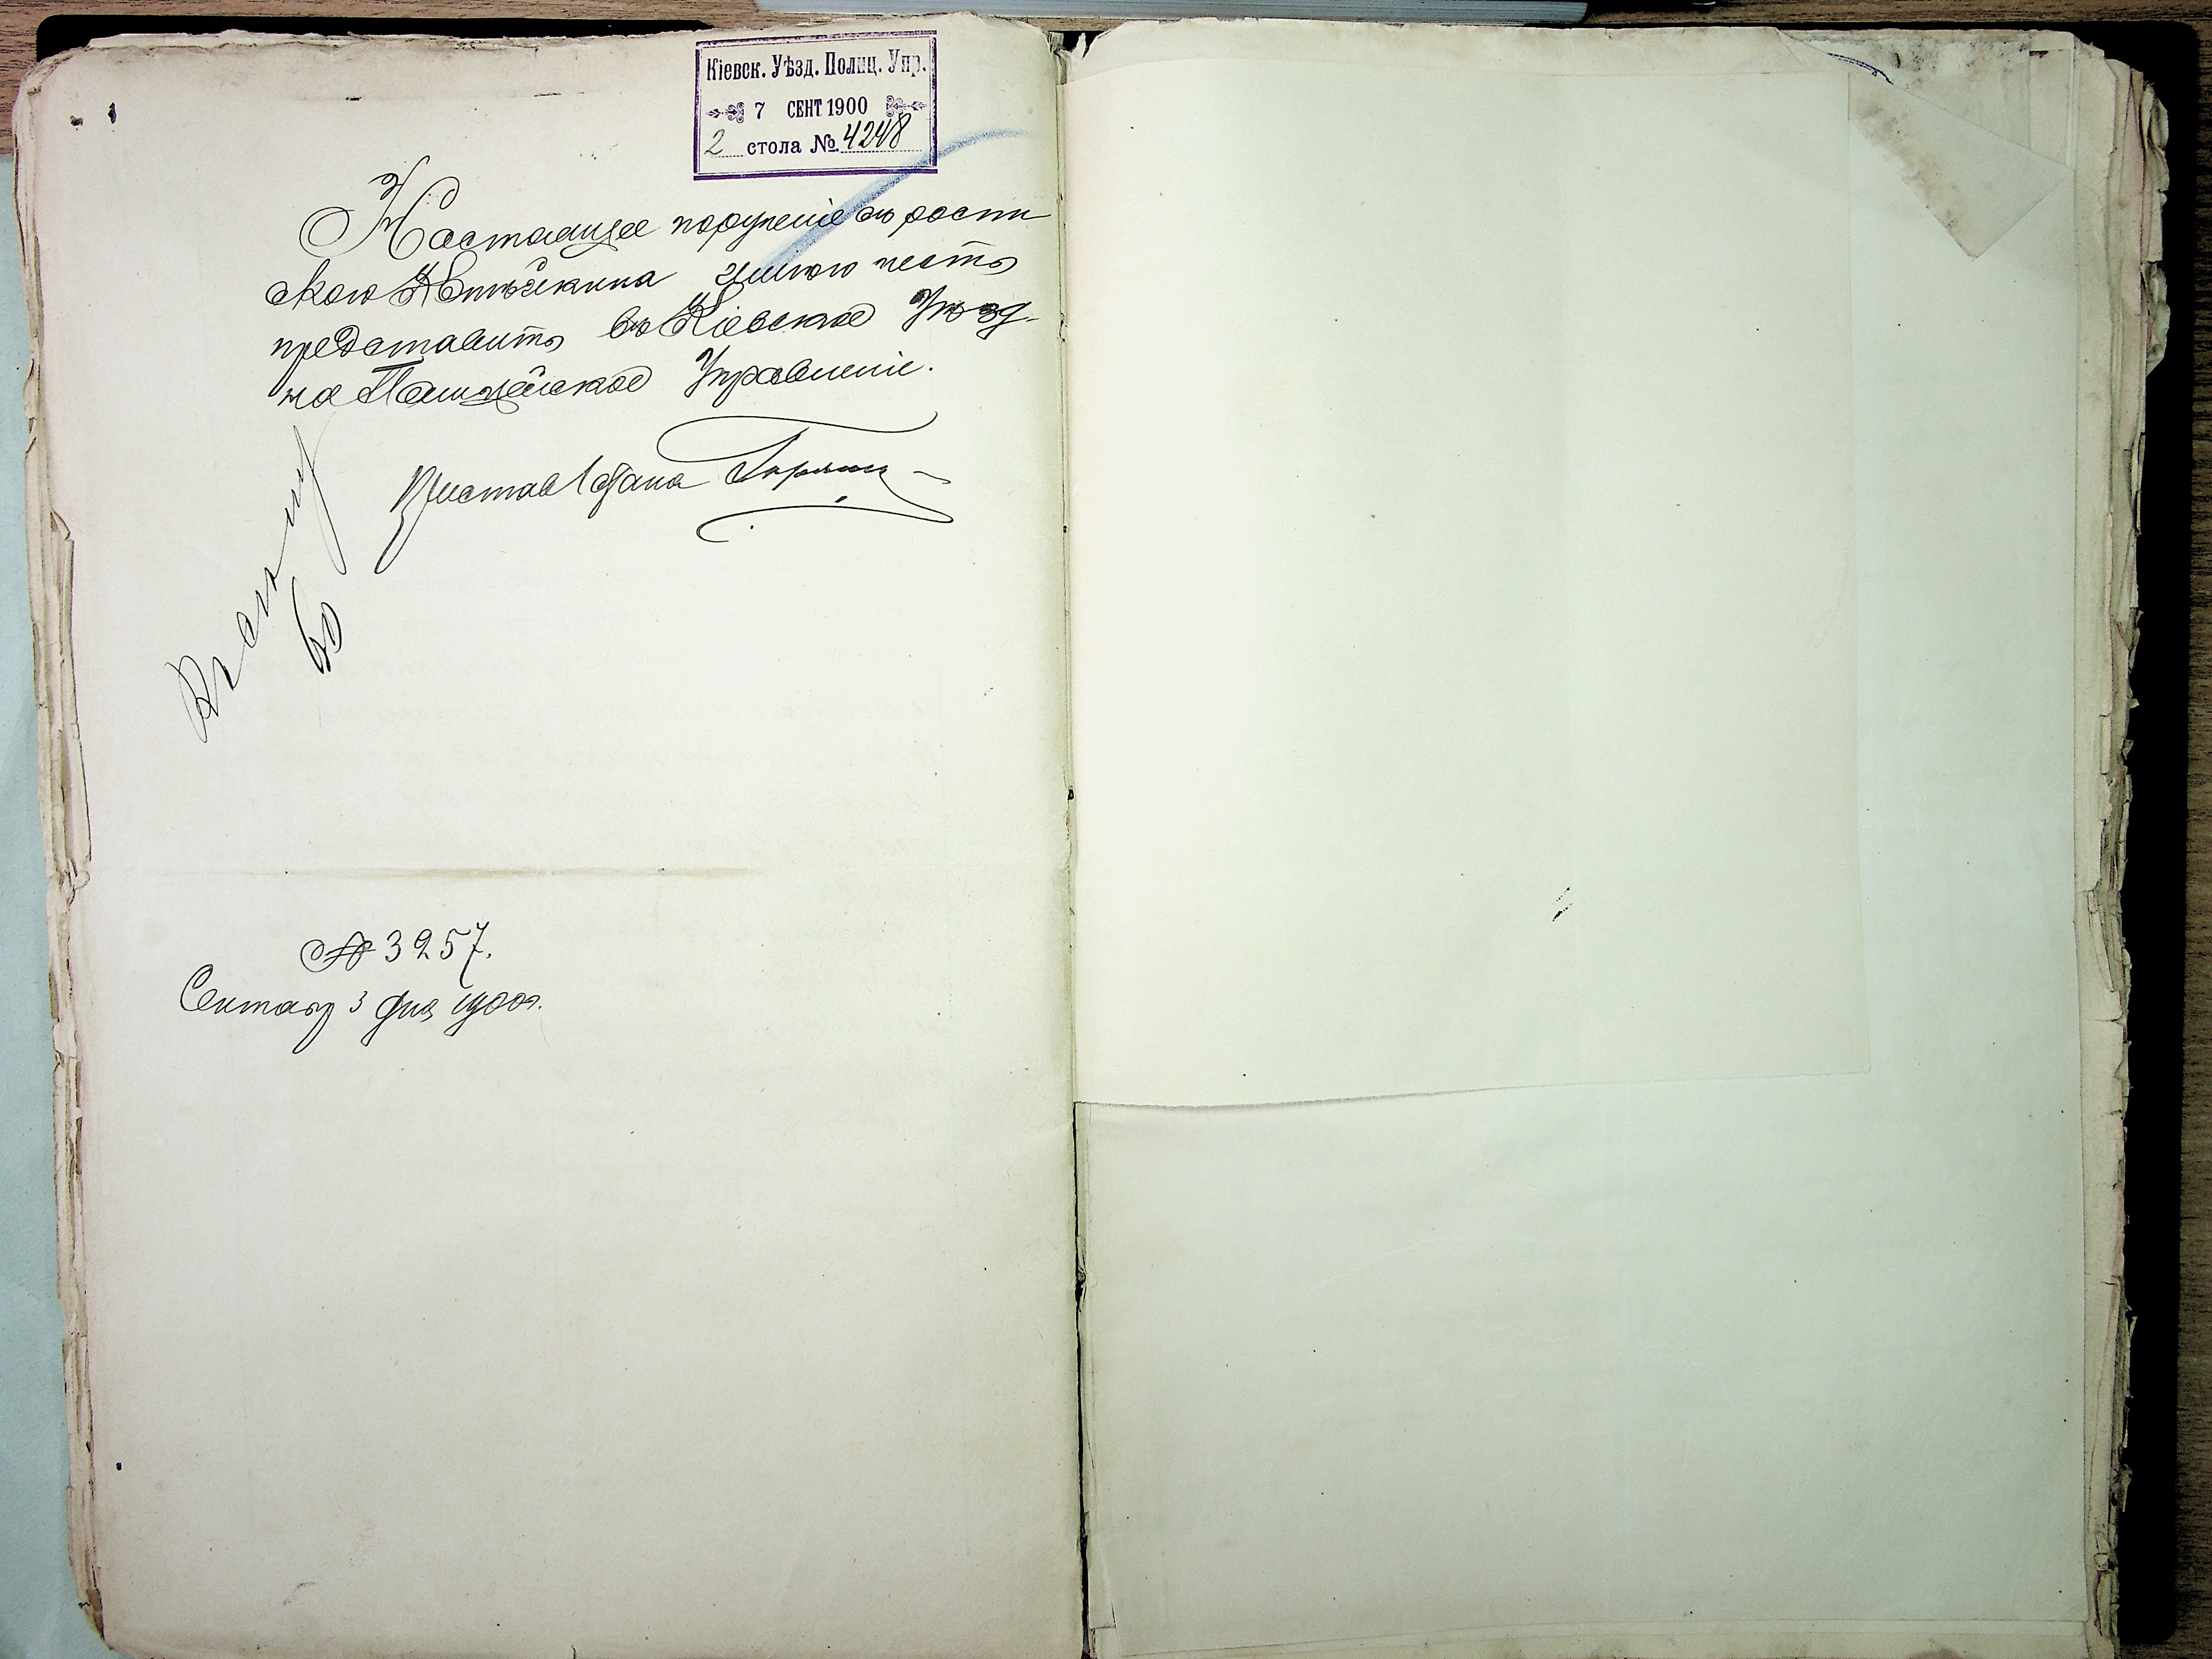 Кіевск. Уѣзд. Полиц. Упр.
7 СЕНТ 1900
2 стола № 4248
Настоящее порученіе съ распи
скою имѣю честь
представить въ Кіевское Уѣзд-
ное Полицейское Управленіе.
Приставъ 1 Стана
№ 3257.
Сентябр 3 дня 1900 г.